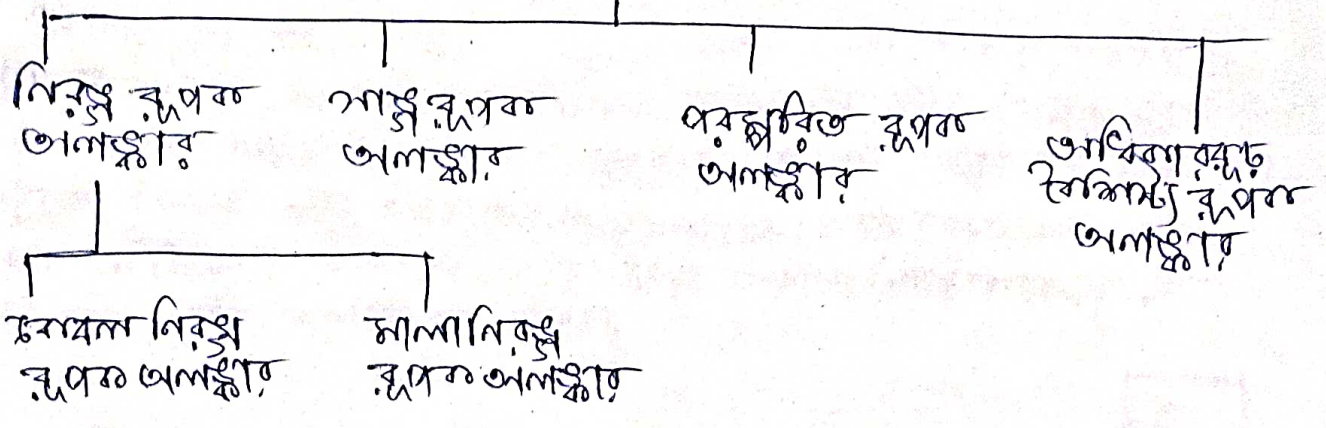 নিরঙ্গ রূপক
অলঙ্কার
সাঙ্গ রূপক
অলঙ্কার
পরম্পরিত রূপক
অলঙ্কার
অধিকাররূঢ়
বৈশিষ্ট্য রূপক
অলঙ্কার
কেবল নিরঙ্গ
রূপক অলঙ্কার
মালা নিরঙ্গ
রূপক অলঙ্কার